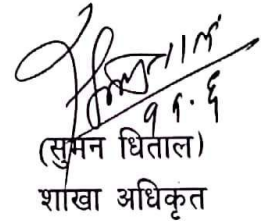 (सुमन धिताल)
शाखा अधिकृत